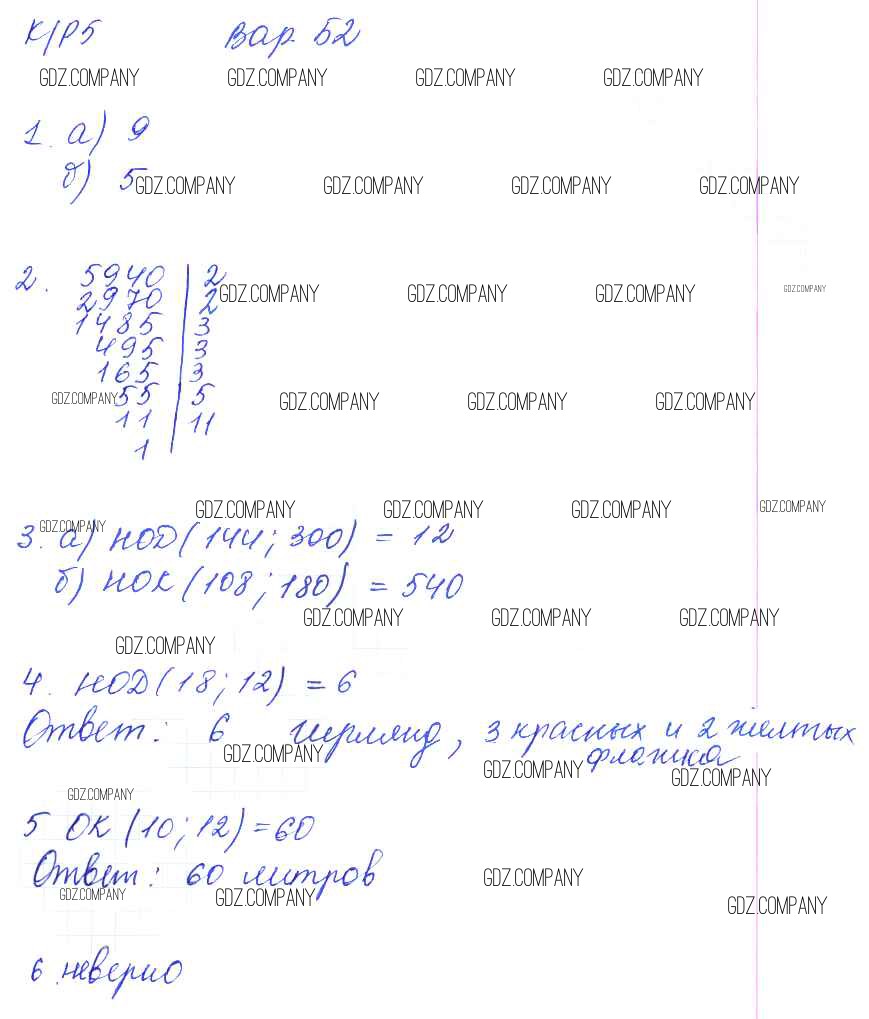 К/Р5 Вар. Б2
GDZ.COMPANY GDZ.COMPANY GDZ.COMPANY GDZ.COMPANY
1. а) 9
б) 5
GDZ.COMPANY GDZ.COMPANY GDZ.COMPANY GDZ.COMPANY
2. 5940 | 2
2970 | 2
GDZ.COMPANY GDZ.COMPANY GDZ.COMPANY GDZ.COMPANY
1485 | 3
495 | 3
165 | 3
55 | 5
GDZ.COMPANY GDZ.COMPANY GDZ.COMPANY GDZ.COMPANY
11 | 11
1
GDZ.COMPANY GDZ.COMPANY GDZ.COMPANY GDZ.COMPANY
GDZ.COMPANY
3. а) НОД(144; 300) = 12
б) НОК(108; 180) = 540
GDZ.COMPANY GDZ.COMPANY GDZ.COMPANY
GDZ.COMPANY
4. НОД(18; 12) = 6
Ответ: 6 гирлянд, 3 красных и 2 желтых
флажка
GDZ.COMPANY GDZ.COMPANY GDZ.COMPANY
GDZ.COMPANY
5 ОК(10; 12) = 60
Ответ: 60 литров
GDZ.COMPANY GDZ.COMPANY GDZ.COMPANY
GDZ.COMPANY
6. неверно